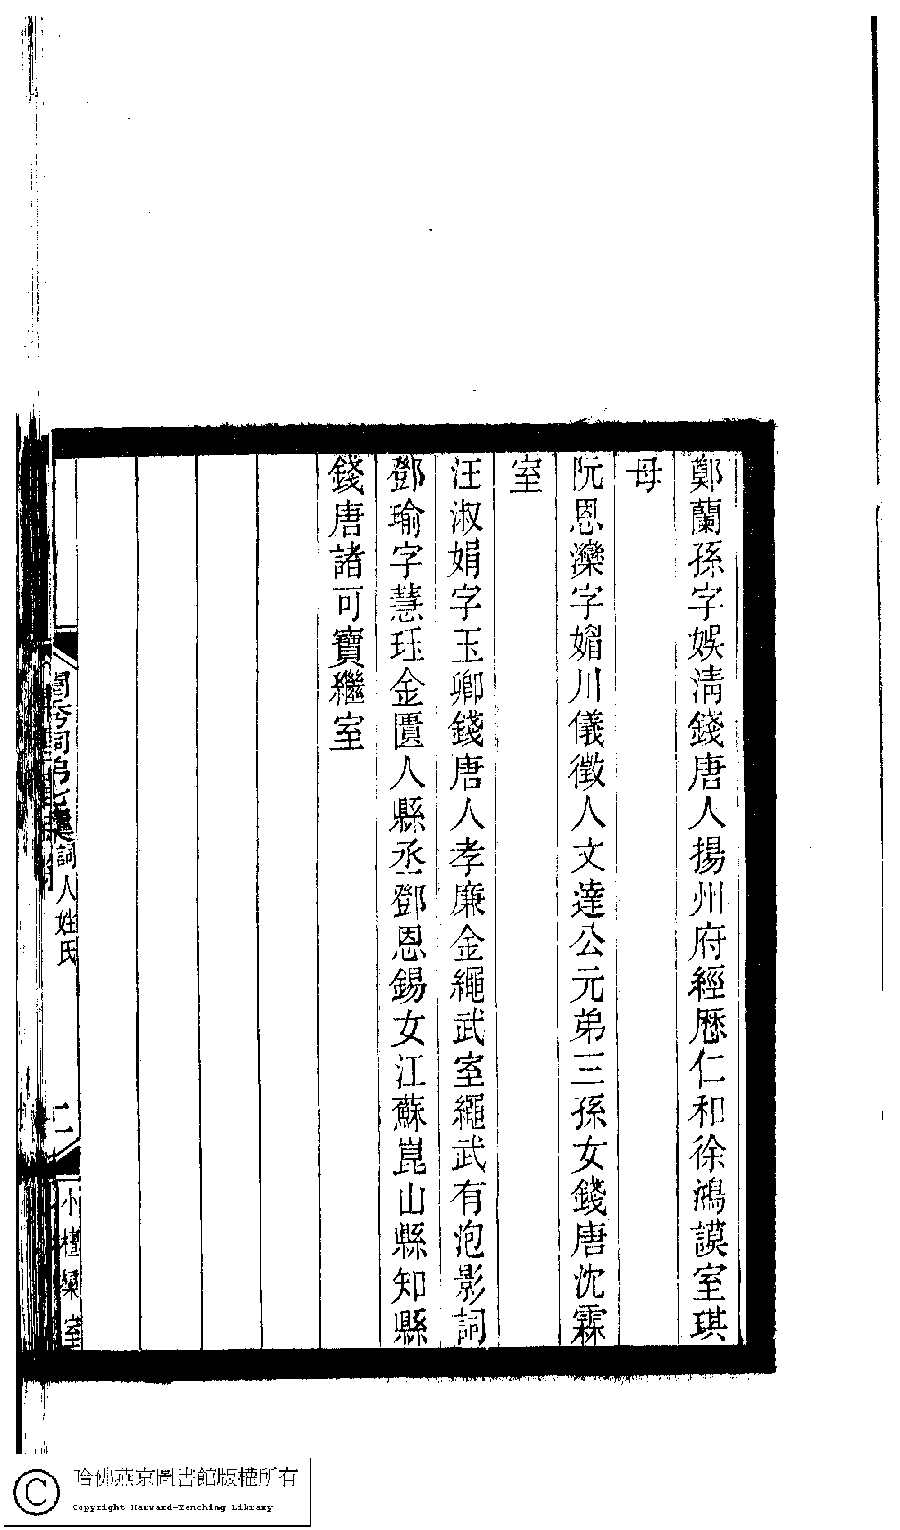 鄭蘭孫字娛淸錢唐人揚州府經歷仁和徐鴻謨室琪
母
阮恩灤字媚川儀徵人文達公元弟三孫女錢唐沈霖
室
汪淑娟字玉卿錢唐人孝廉金繩武室繩武有泡影詞
鄧瑜字慧珏金匱人縣丞鄧恩錫女江蘇崑山縣知縣
錢唐諸可寶繼室
閨秀詞弟七集 詞人姓氏
二
小檀欒室
哈佛燕京圖書館版權所有
Copyright Harvard-Yenching Library